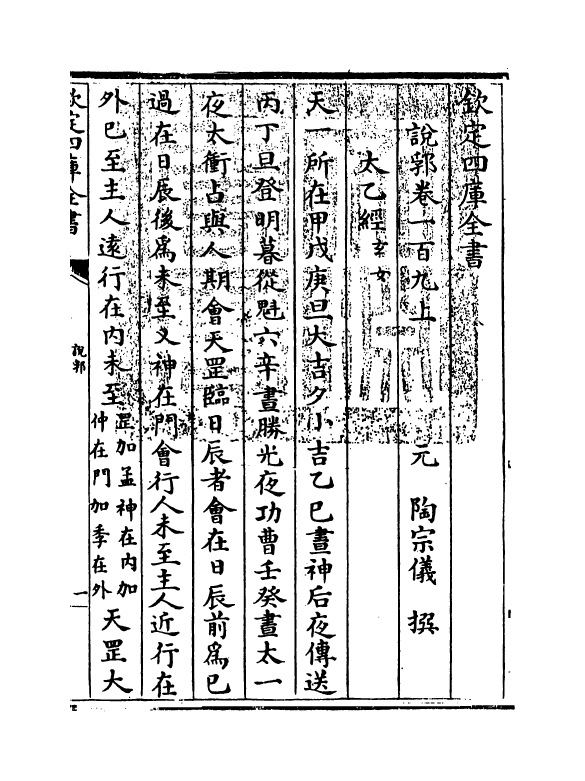 欽定四庫全書
說郛卷一百九上
元 陶宗儀 撰
太乙經 玄女
天一所在甲戊庚旦大吉夕小吉乙巳晝神后夜傳送
丙丁旦登明暮從魁六辛晝勝光夜功曹壬癸晝太一
夜太衝占與人期會天罡臨日辰者會在日辰前為已
過在日辰後為未至又神在門會行人未至主人近行在
外已至主人遠行在内未至
罡加孟神在内加
仲在門加季在外
天罡大
欽定四庫全書
說郛
一